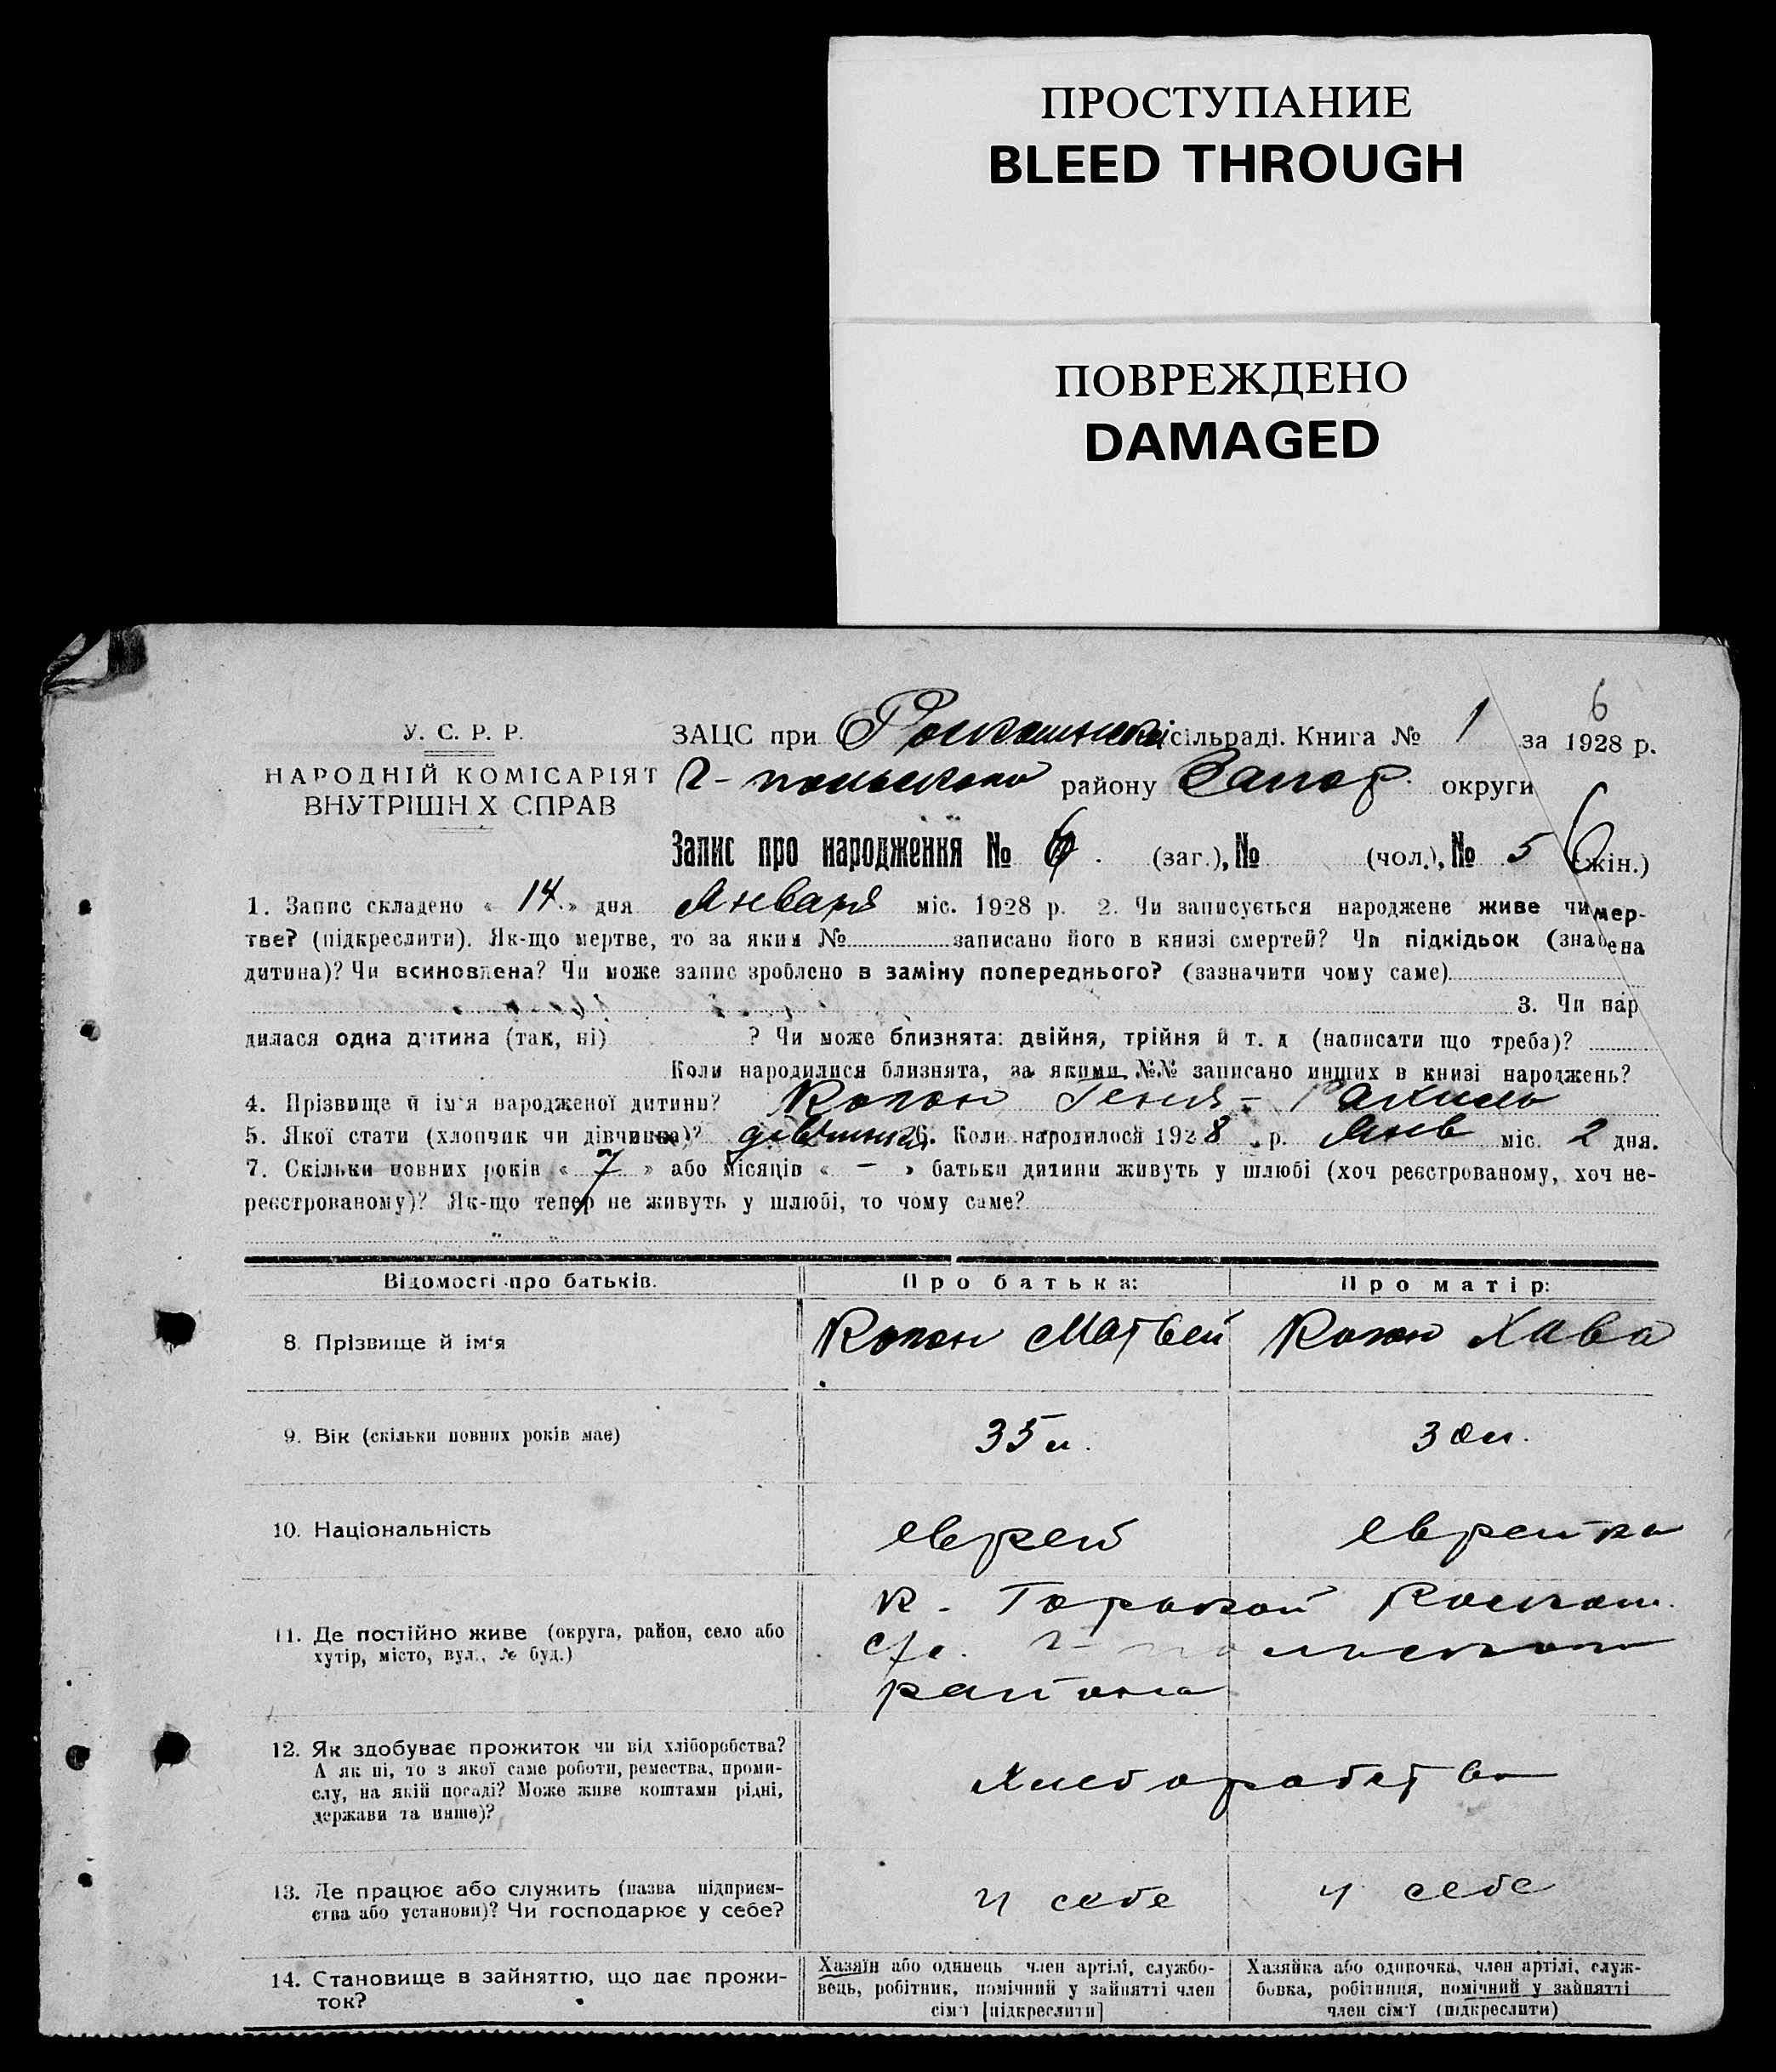 ПРОСТУПАНИЕ
BLEED THROUGH
ПОВРЕЖДЕНО
DAMAGED
6
У. С. Р. Р.
ЗАЦС при сільраді. Книга № 1 за 1928 р.
НАРОДНІЙ КОМІСАРІЯТ
ВНУТРІШН Х СПРАВ
району Запор. округи
Запис про народження № 6 (заг.), № (чол.), № 5 6 (жін.)
1. Запис складено « 14. » дня Января міс. 1928 р. 2. Чи записується народжене живе чи мер-
тве? (підкреслити). Як-що мертве, то за яким № записано його в книзі смертей? Чи підкідьок (знайдена
дитина)? Чи всиновлена? Чи може запис зроблено в заміну попереднього? (зазначити чому саме)
3. Чи нар
дилася одна дитина (так, ні) ? Чи може близнята: двійня, трійня й т. д (написати що треба)?
Коли народилися близнята, за якими №№ записано инших в книзі народжень?
4. Прізвище й ім'я народженої дитини? Коган Геня-Рахиль
5. Якої стати (хлопчик чи дівчинка)? дівчинка 6. Коли народилося 1928 р. Янв міс. 2 дня.
7. Скільки повних років « 7 » або місяців « – » батьки дитини живуть у шлюбі (хоч реєстрованому, хоч не-
реєстрованому)? Як-що тепер не живуть у шлюбі, то чому саме?
Відомості про батьків. Про батька: Про матір:
8. Прізвище й ім'я Коган Матвей Коган Хава
9. Вік (скільки повних років має) 35 л. 30 л.
10. Національність еврей еврейка
к. Горькой Роскош.
11. Де постійно живе (округа, район, село або
хутір, місто, вул., № буд.)
с/с.
района
12. Як здобуває прожиток чи від хліборобства?
А як ні, то з якої саме роботи, ремества, проми-
слу, на якій посаді? Може живе коштами рідні,
держави та инше)?
Хлеборобство
13. Де працює або служить (назва підприєм-
ства або установи)? Чи господарює у себе?
у себе у себе
14. Становище в зайняттю, що дає прожи-
ток?
Хазяїн або одинець член артілі, службо-
вець, робітник, помічний у зайнятті член
сім'ї [підкреслити]
Хазяйка або одиночка, член артілі, служ-
бовка, робітниця, помічний у зайнятті
член сім'ї (підкреслити)